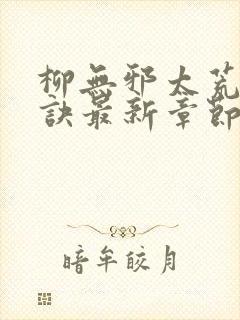 柳無邪太荒
訣最新章節
暗牟皎月